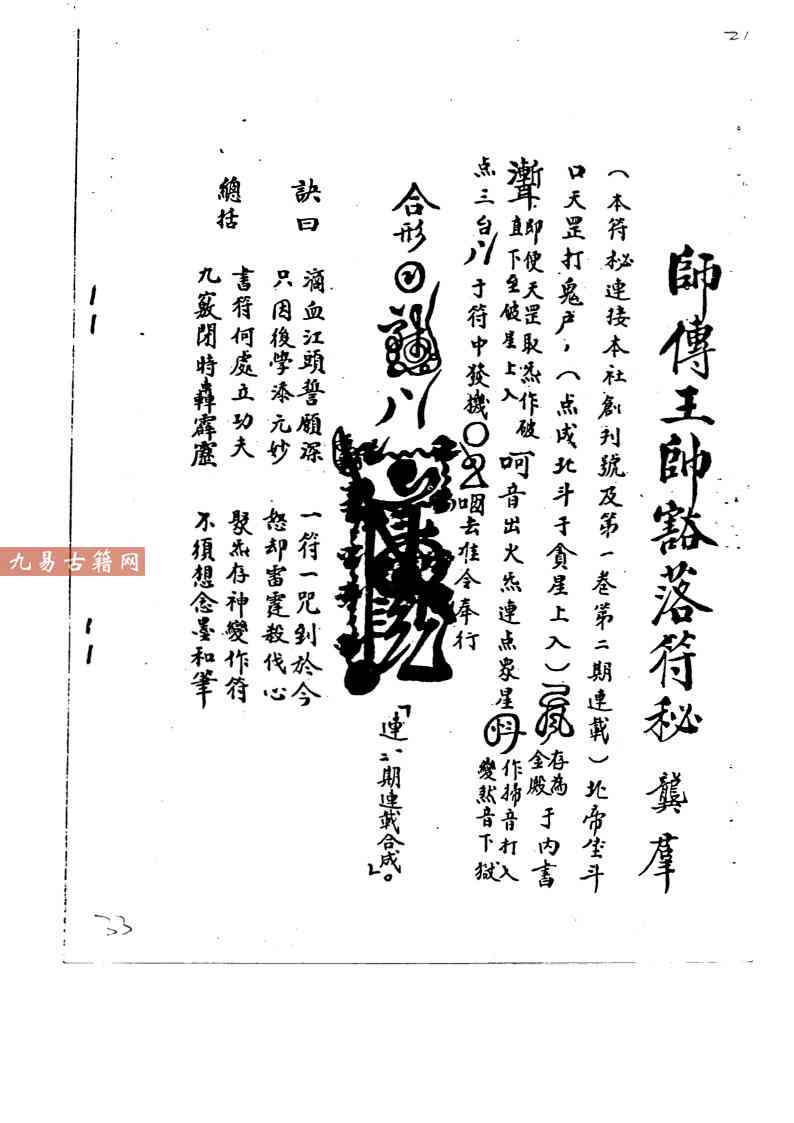 21
師傳王帥豁落符秘 龔羣
（本符秘連接本社創刋號及第一卷第二期連載）北帝坐斗
口天罡打鬼户，（点成北斗于貪星上入）存為金殿于内書
即便天罡取炁作破直下至破星上入呵音出火炁連点衆星作掃音打入變煞音下獄
点三台于符中發機咽去准令奉行
合形
「連二期連載合成。」
訣曰 滴血江頭誓願深 一符一咒到於今
只因後學添元妙 怒却雷霆殺伐心
總括 書符何處立功夫 聚炁存神變作符
九竅閉時轟霹靂 不須想念墨和筆
33
九易古籍网